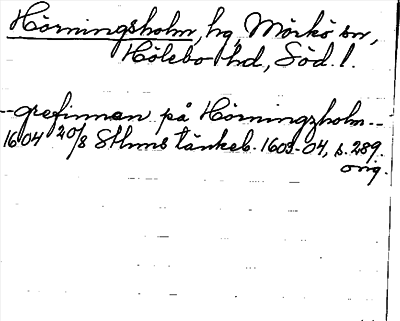 Hörningsholm, hg, Mörkö sn,
Hölebo hd, Söd. l.
--grefinnan på Hörningzholm--
1604 20/8 Sthms tänkeb. 1603-04, s. 289.
orig.